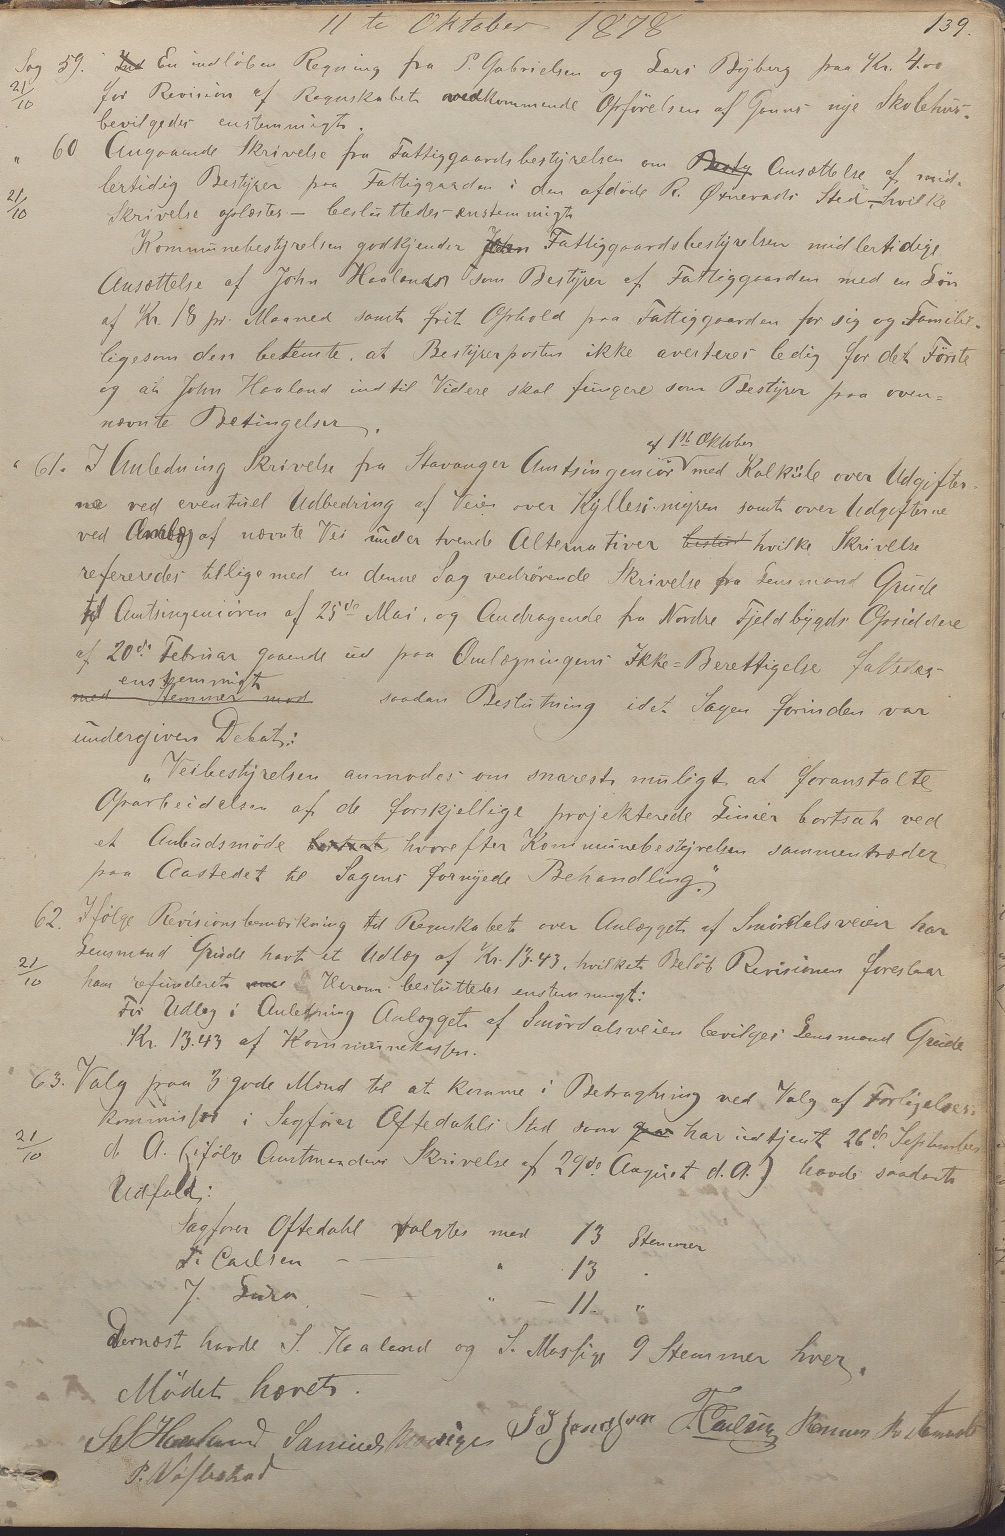 11te Oktober 1878 139.
Sag 59. En indløben Regning fra P. Gabrielsen og Lars Byberg paa Kr. 4.00
21/10 for Revision af Regnskabet vedkommende Opførelsen af nye Skolehus
bevilgedes enstemmigt.
" 60 Angaaende Skrivelse fra Fattiggaardsbestyrelsen om Ansættelse af mid-
21/10 lertidig Bestyrer paa Fattiggaarden i den afdøde R. Øxnevads Sted, hvilke
Skrivelse oplæstes – besluttedes enstemmigt
Kommunebestyrelsen godkjender Fattiggaardsbestyrelsen midlertidige
Ansættelse af John Haaland som Bestyrer af Fattiggaarden med en Løn
af Kr. 18 pr. Maaned samt frit Ophold paa Fattiggaarden for sig og Familie
ligesom den bestemte, at Bestyrerposten ikke averteres ledig for det Første
og at John Haaland indtil Videre skal fungere som Bestyrer paa oven-
nævnte Betingelser.
af 1ste Oktober
" 61. I Anledning Skrivelse fra Stavanger Amtsingeniør med Kalkule over Udgifter-
ne ved eventuel Udbedring af Veien over samt over Udgifterne
ved Anlæg af nævnte Vei under tvende Alternativer hvilke Skrivelse
refereredes tilligemed en denne Sag vedrørende Skrivelse fra Lensmand Grude
til Amtsingeniøren af 25de Mai, og Andragende fra Nordre Fjeldbygds Opsiddere
af 20de Februar gaaende ud paa Omlægningens Ikke=Berettigelse fattedes
enstemmigt
med Stemmer mod saadan Beslutning idet Sagen forinden var
undergiven Debat:
„Veibestyrelsen anmodes om snarest muligt at foranstalte
Oparbeidelsen af de forskjellige projekterede Linier bortsat ved
et Anbudsmøde hvorefter Kommunebestyrelsen sammentræder
paa Aastedet til Sagens fornyede Behandling."
62. Ifølge Revisionsbemærkning til Regnskabet over Anlægget af Smørdalsveien har
21/10 Lensmand Grude havt et Udlæg af Kr. 13.43, hvilket Beløb Revisionen foreslaar
ham refunderet. Herom besluttedes enstemmigt:
For Udlæg i Anledning Anlægget af Smørdalsveien bevilges Lensmand Grude
Kr. 13.43 af Kommunekassen.
63. Valg paa 3 gode Mænd til at komme i Betragtning ved Valg af Forligelses-
21/10 kommissær i Sagfører Oftedahls Sted som har udtjent 26de September
d. A. (ifølge Amtmandens Skrivelse af 29de August d. A.) havde saadant
Udfald:
Sagfører Oftedahl valgtes med 13 Stemmer
T. Carlsen — " 13 "
J. Lura — " — 11 "
Dernæst havde S. Haaland og S. Mossige 9 Stemmer hver.
Mødet hævet.
Haaland Samuel Mossige T Carlsen